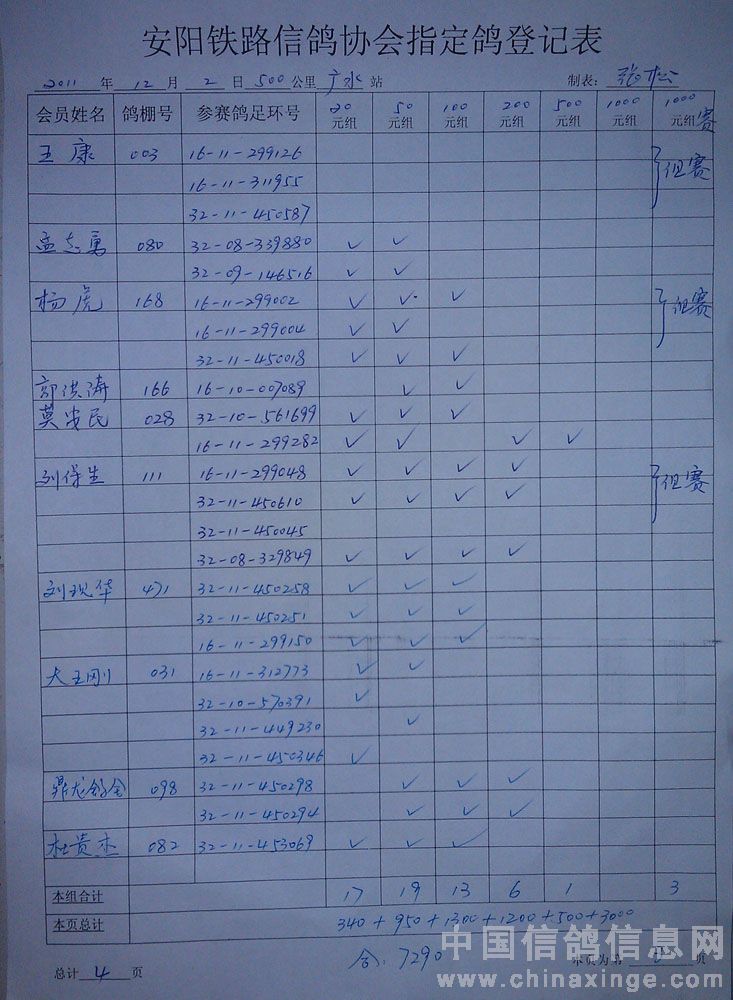 安阳铁路信鸽协会指定鸽登记表
2011 年 12 月 2 日 500 公里 广水 站 制表: 张松
会员姓名 鸽棚号 参赛鸽足环号 20元组 50元组 100元组 200元组 500元组 1000元组 1000元组赛
王康 003 16-11-299126
16-11-311955 组赛
32-11-450587
孟志勇 080 32-08-339880 ✓ ✓
32-09-146516 ✓ ✓
杨虎 168 16-11-299002 ✓ ✓ ✓ 组赛
16-11-299004 ✓ ✓
32-11-450018 ✓ ✓ ✓
郭洪涛 166 16-10-007089 ✓ ✓
莫安民 028 32-10-561699 ✓ ✓ ✓
16-11-299282 ✓ ✓ ✓ ✓
刘保生 111 16-11-299048 ✓ ✓ ✓ ✓ 组赛
32-11-450610 ✓ ✓ ✓ ✓
32-11-450045
32-08-329849 ✓ ✓ ✓ ✓
刘现华 471 32-11-450258 ✓ ✓ ✓
32-11-450251 ✓ ✓ ✓
16-11-299150 ✓ ✓ ✓
大王刚 031 16-11-312773 ✓ ✓
32-10-570391 ✓
32-11-449230 ✓
32-11-450346 ✓
鼎龙鸽舍 098 32-11-450298 ✓ ✓ ✓
32-11-450294 ✓ ✓ ✓
杜贵杰 082 32-11-453069 ✓ ✓ ✓
本组合计 17 19 13 6 1 3
本页总计 340+950+1300+1200+500+3000
合:7290
总计 4 页 本页为第 页
中国信鸽信息网
www.chinaxinge.com